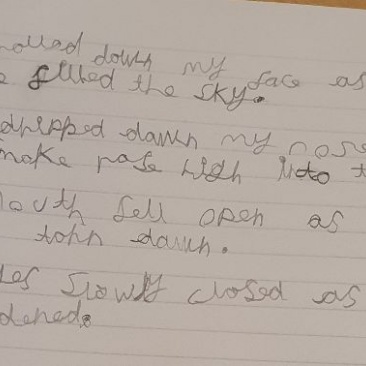 rolled down my face as
e filled the sky.
dripped down my nose
smoke rose high into t
outh fell open as
torn down.
es slowly closed as
dened.